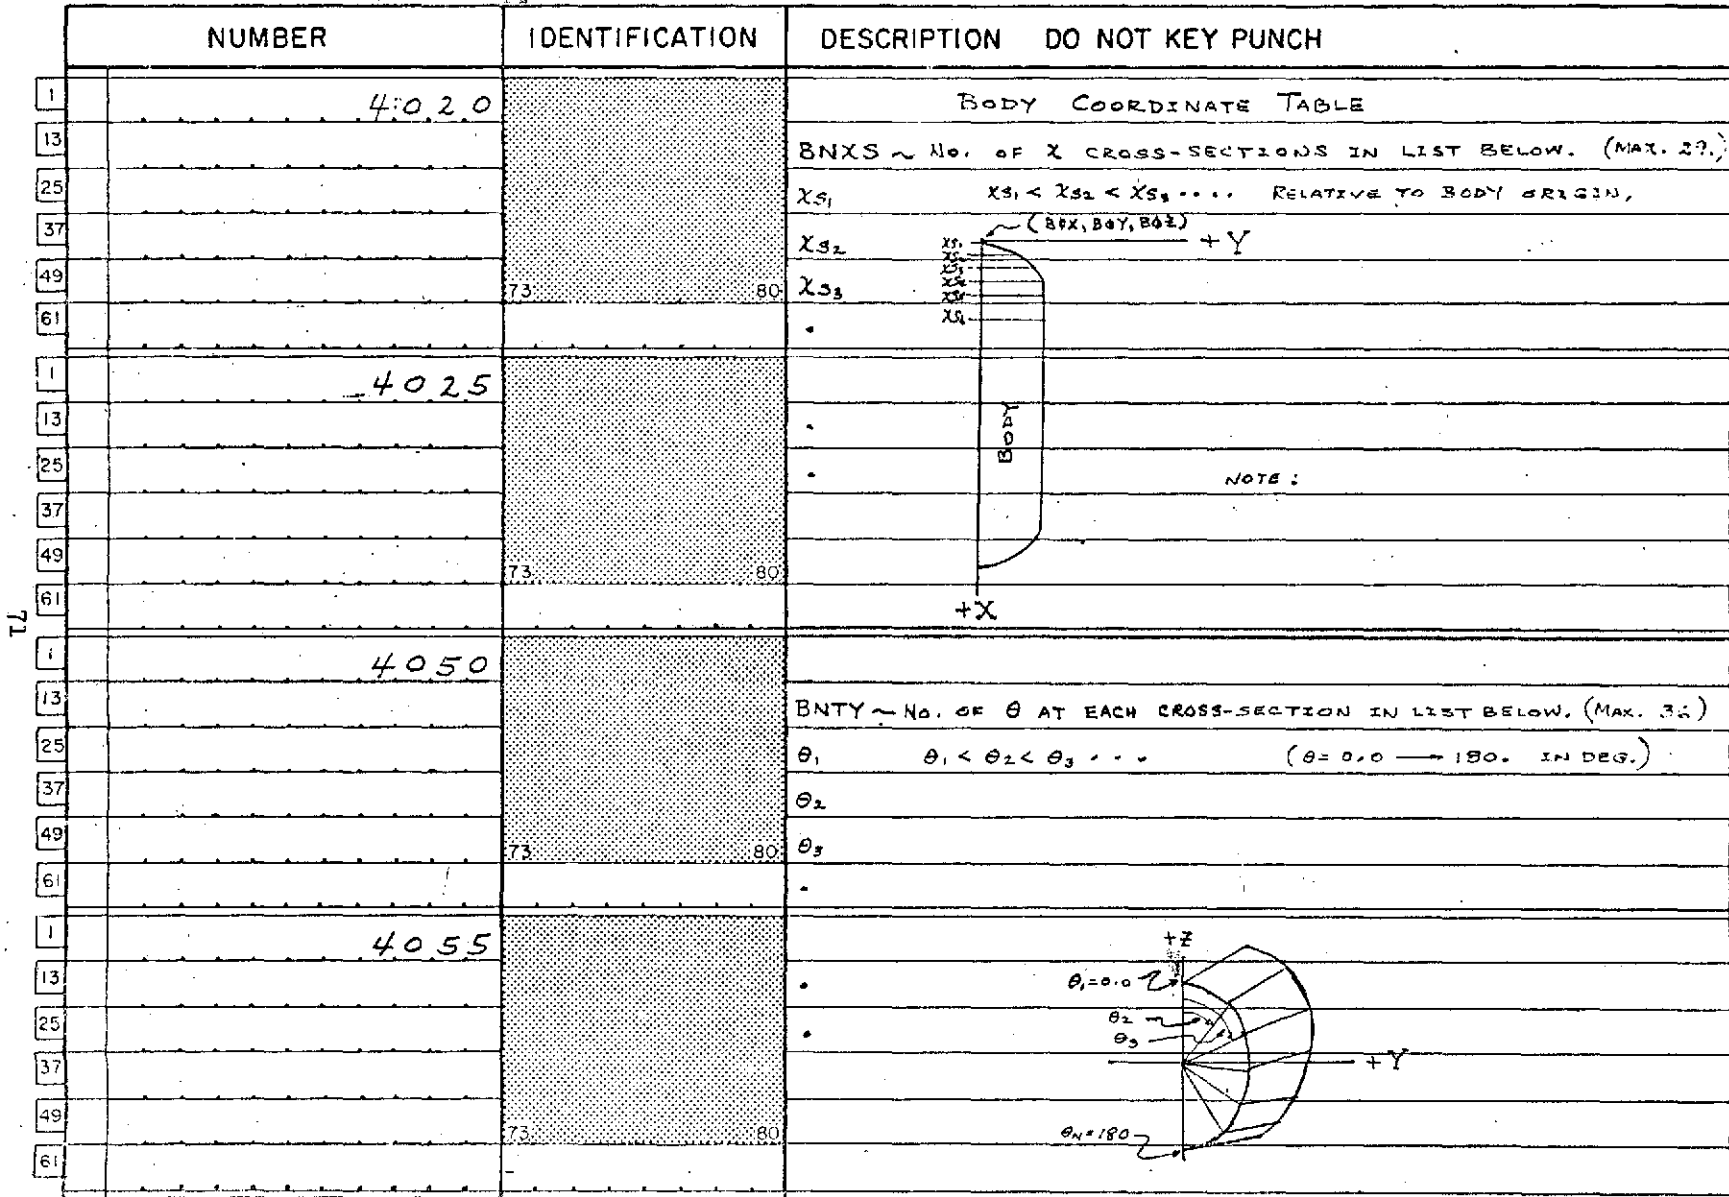 NUMBER IDENTIFICATION DESCRIPTION DO NOT KEY PUNCH
1 4020 BODY COORDINATE TABLE
13 BNXS ~ NO. OF X CROSS-SECTIONS IN LIST BELOW. (MAX. 29.)
25 XS1 XS1 < XS2 < XS3 .... RELATIVE TO BODY ORIGIN.
37 XS2 (BØX, BØY, BØZ) +Y
XS1
XS2
XS3
49 XS3 73 80
XS4
XS5
XS6
61 .
1 4025
13 .
BODY
25 . NOTE:
37
49 73 80
61 +X
71
1 4050
13 BNTY ~ NO. OF θ AT EACH CROSS-SECTION IN LIST BELOW. (MAX. )
25 θ1 θ1 < θ2 < θ3 ... (θ = 0.0 → 180. IN DEG.)
37 θ2
49 73 80 θ3
61 .
1 4055 +Z
13 . θ1=0.0
25 . θ2
θ3
37 +Y
49 73 80 θN=180
61